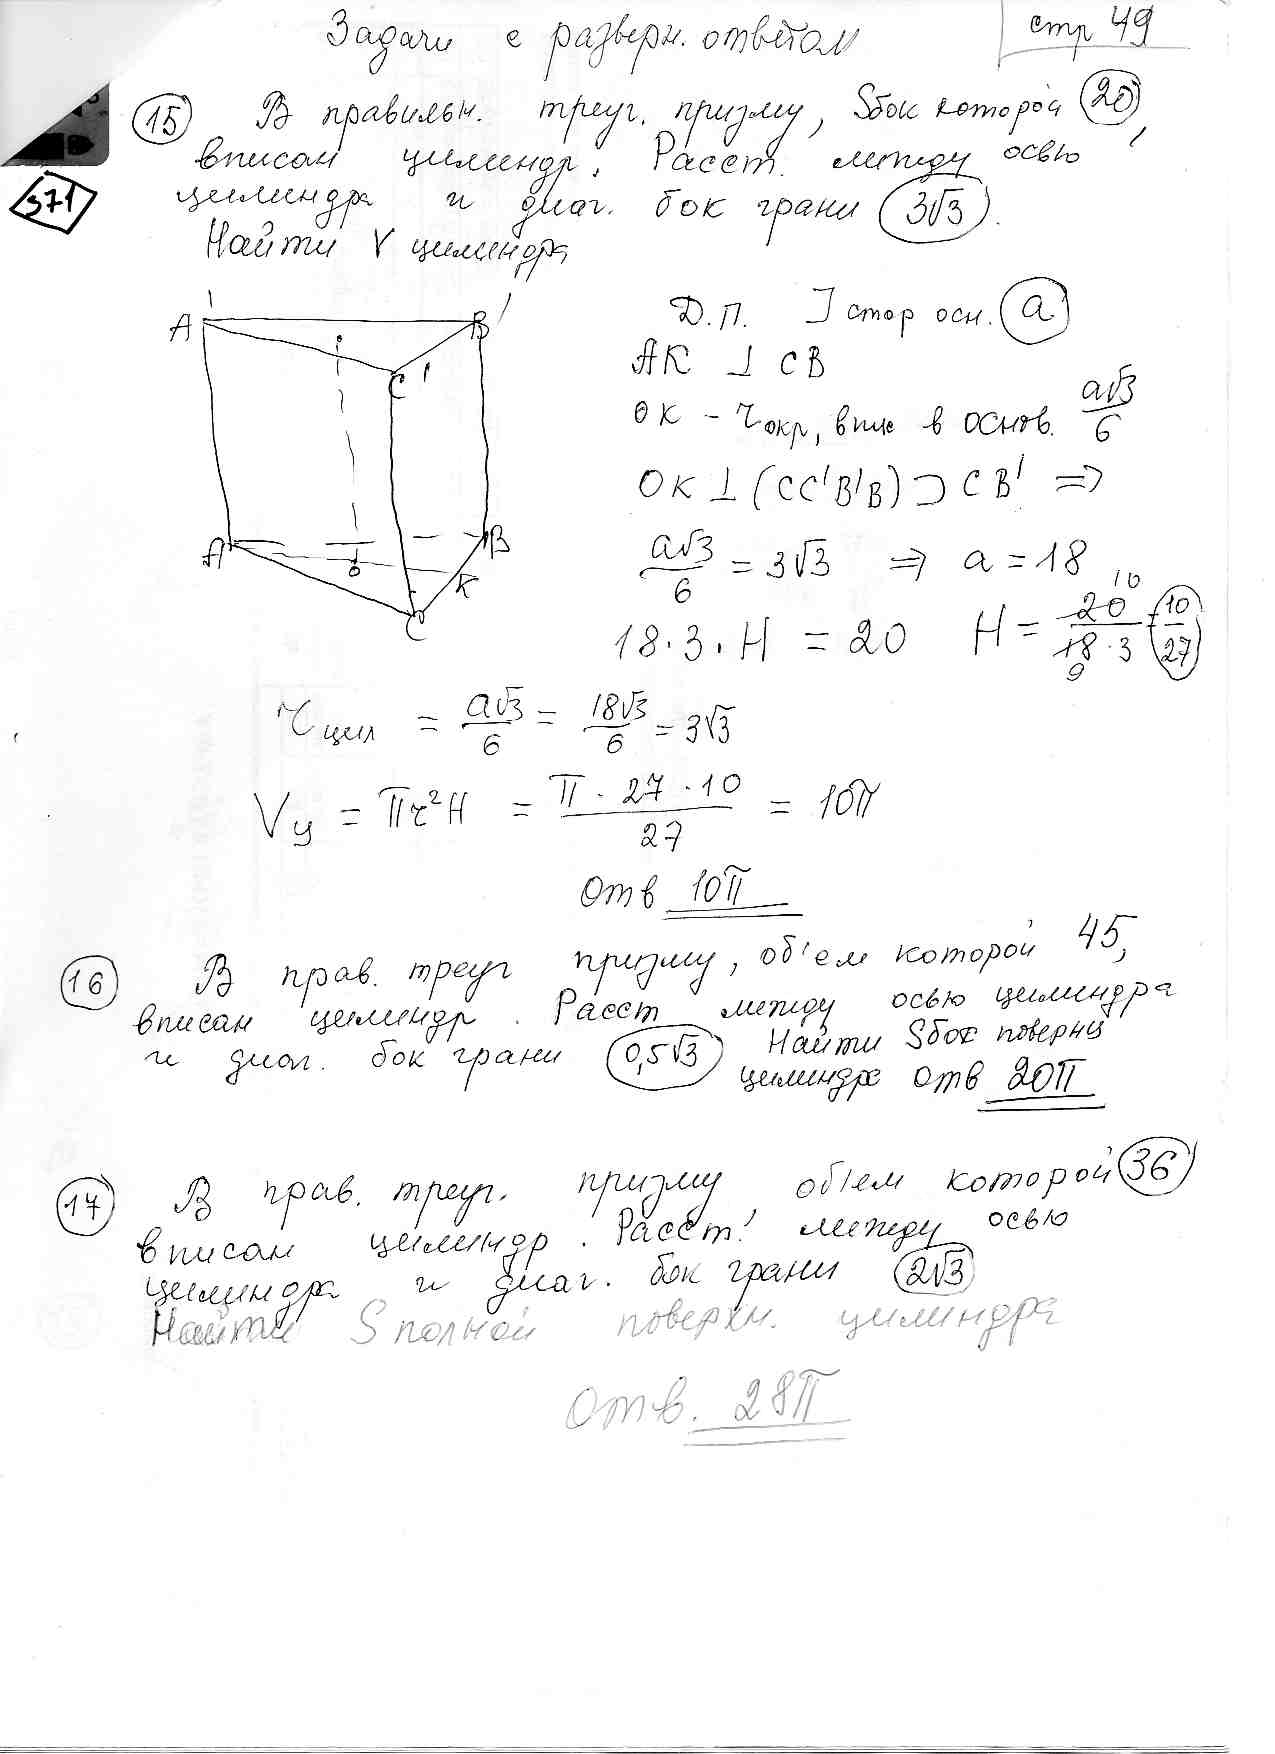 Задачи с разверн. ответом
стр 49
15 В правильн. треуг. призму, Sбок которой 20,
вписан цилиндр. Расст. между осью
371
цилиндра и диаг. бок грани 3√3.
Найти V цилиндра
A' B' C'
A B C O K
Д.П. ] стор осн. a
AK ⊥ CB
OK - r окр, впис в основ. a√3/6
OK ⊥ (CC'B'B) ⊃ CB' ⇒
a√3/6 = 3√3 ⇒ a = 18
18·3·H = 20 H = 20/18·3 = 10/27
10
9
r цил = a√3/6 = 18√3/6 = 3√3
Vц = πr²H = π·27·10/27 = 10π
Отв 10π
16 В прав. треуг призму, об'ем которой 45,
вписан цилиндр. Расст между осью цилиндра
и диаг. бок грани 0,5√3 Найти Sбок поверхн
цилиндра Отв 20π
17 В прав. треуг. призму об'ем которой 36
вписан цилиндр. Расст. между осью
цилиндра и диаг. бок грани 2√3
Найти S полной поверхн. цилиндра
Отв. 28π